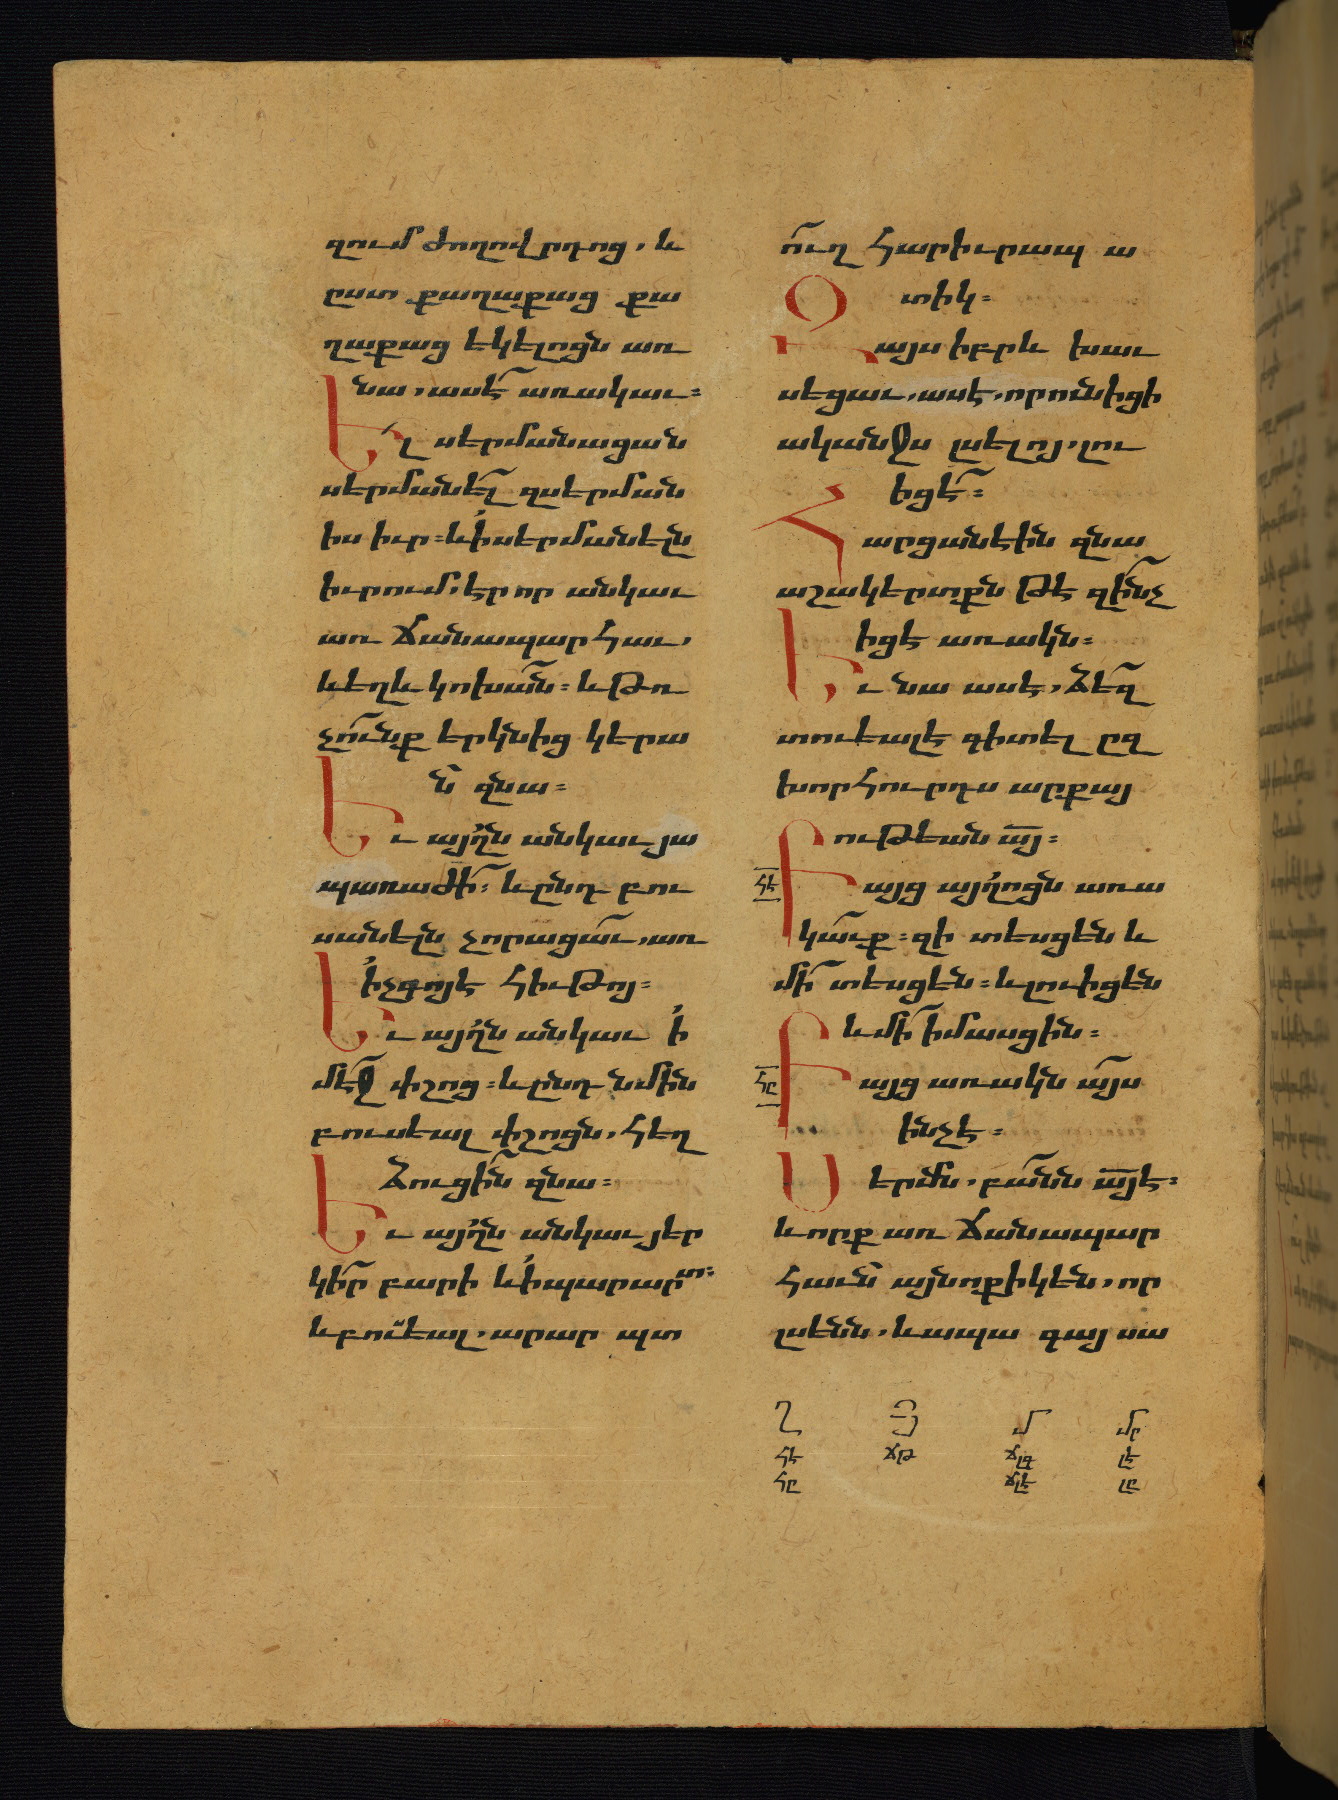 զում ժողովրդոց, և
ըստ քաղաքաց քա
ղաքաց եկելոցն առ
նա, ասէ առակաւ։
Ել սերմանացան
սերմանել զսերման
իս իւր։ և ՚ի սերմանելն
իւրում, էր որ անկաւ
առ ճանապարհաւ,
և եղև կոխան։ և թռ
չունք երկնից կերա
ն զնա։
Եւ այլն անկաւ յա
պառաժի։ և ընդ բու
սանելն չորացաւ, առ
՚ի չգոյէ հիւթոյ։
Եւ այլն անկաւ ՚ի
մէջ փշոց։ և ընդ նմին
բուսեալ փշոցն, հեղ
ձուցին զնա։
Եւ այլն անկաւ յեր
կիր բարի և ՚ի պարարտ։
և բուսեալ, արար պտ
ուղ հարիւրապ ա
տիկ։
Զայս իբրև խաւ
սեցաւ, ասէ, որ ունիցի
ականջս լսելոյ, լու
իցէ։
Հարցանէին զնա
աշակերտքն թէ զինչ
իցէ առակն։
Եւ նա ասէ, ձեզ
տուեալ է գիտել ըզ
խորհուրդս արքայ
ութեան այ։
հէ
Բայց այլոցն առա
կաւք։ զի տեսցեն և
մի տեսցեն։ և լուիցեն
և մի իմասցին։
հը
Բայց առակն այս
ինչ է։
Սերմն, բանն այ է։
և որք առ ճանապար
հաւն այնոքիկ են, որ
լսենն, և ապա գայ սա
Ղ Յ Մ մր
հէ ճթ ճլգ լէ
հը ճլէ լը